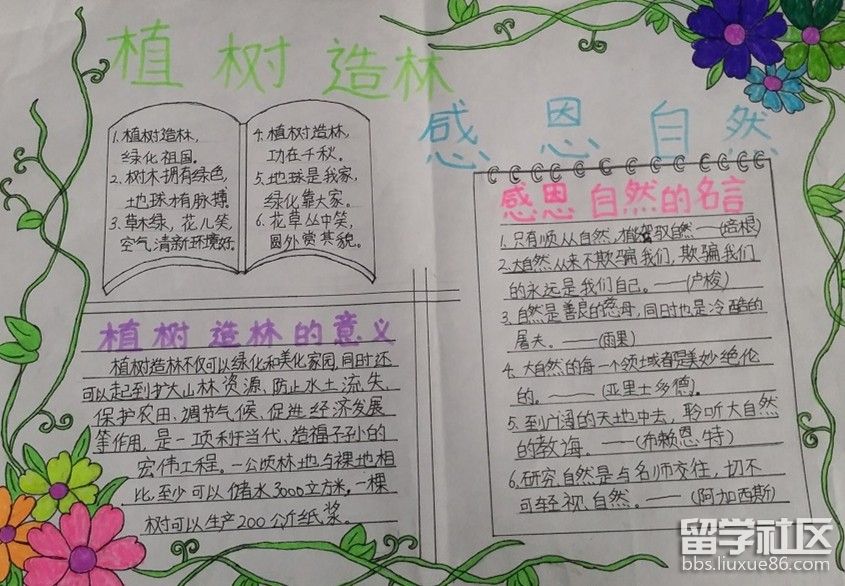 植树造林
感恩自然
1.植树造林,
绿化祖国。
2.树木拥有绿色,
地球才有脉搏。
3.草木绿,花儿笑,
空气清新环境好
4.植树造林,
功在千秋。
5.地球是我家,
绿化靠大家。
6.花草丛中笑,
园外赏其貌。
植树造林的意义
植树造林不仅可以绿化和美化家园,同时还
可以起到扩大山林资源、防止水土流失、
保护农田、调节气候、促进经济发展
等作用,是一项利于当代、造福子孙的
宏伟工程。一公顷林地与裸地相
比,至少可以储水3000立方米,一棵
树可以生产200公斤纸浆。
感恩自然的名言
1.只有顺从自然,才能驾驭自然——(培根)
2.大自然从来不欺骗我们,欺骗我们
的永远是我们自己。——(卢梭)
3.自然是善良的慈母,同时也是冷酷的
屠夫。——(雨果)
4.大自然的每一个领域都是美妙绝伦
的。——(亚里士多德)。
5.到广阔的天地中去,聆听大自然
的教诲。——(布赖恩特)
6.研究自然是与名师交往,切不
可轻视自然。——(阿加西斯)
留学社区
bbs.liuxue86.com